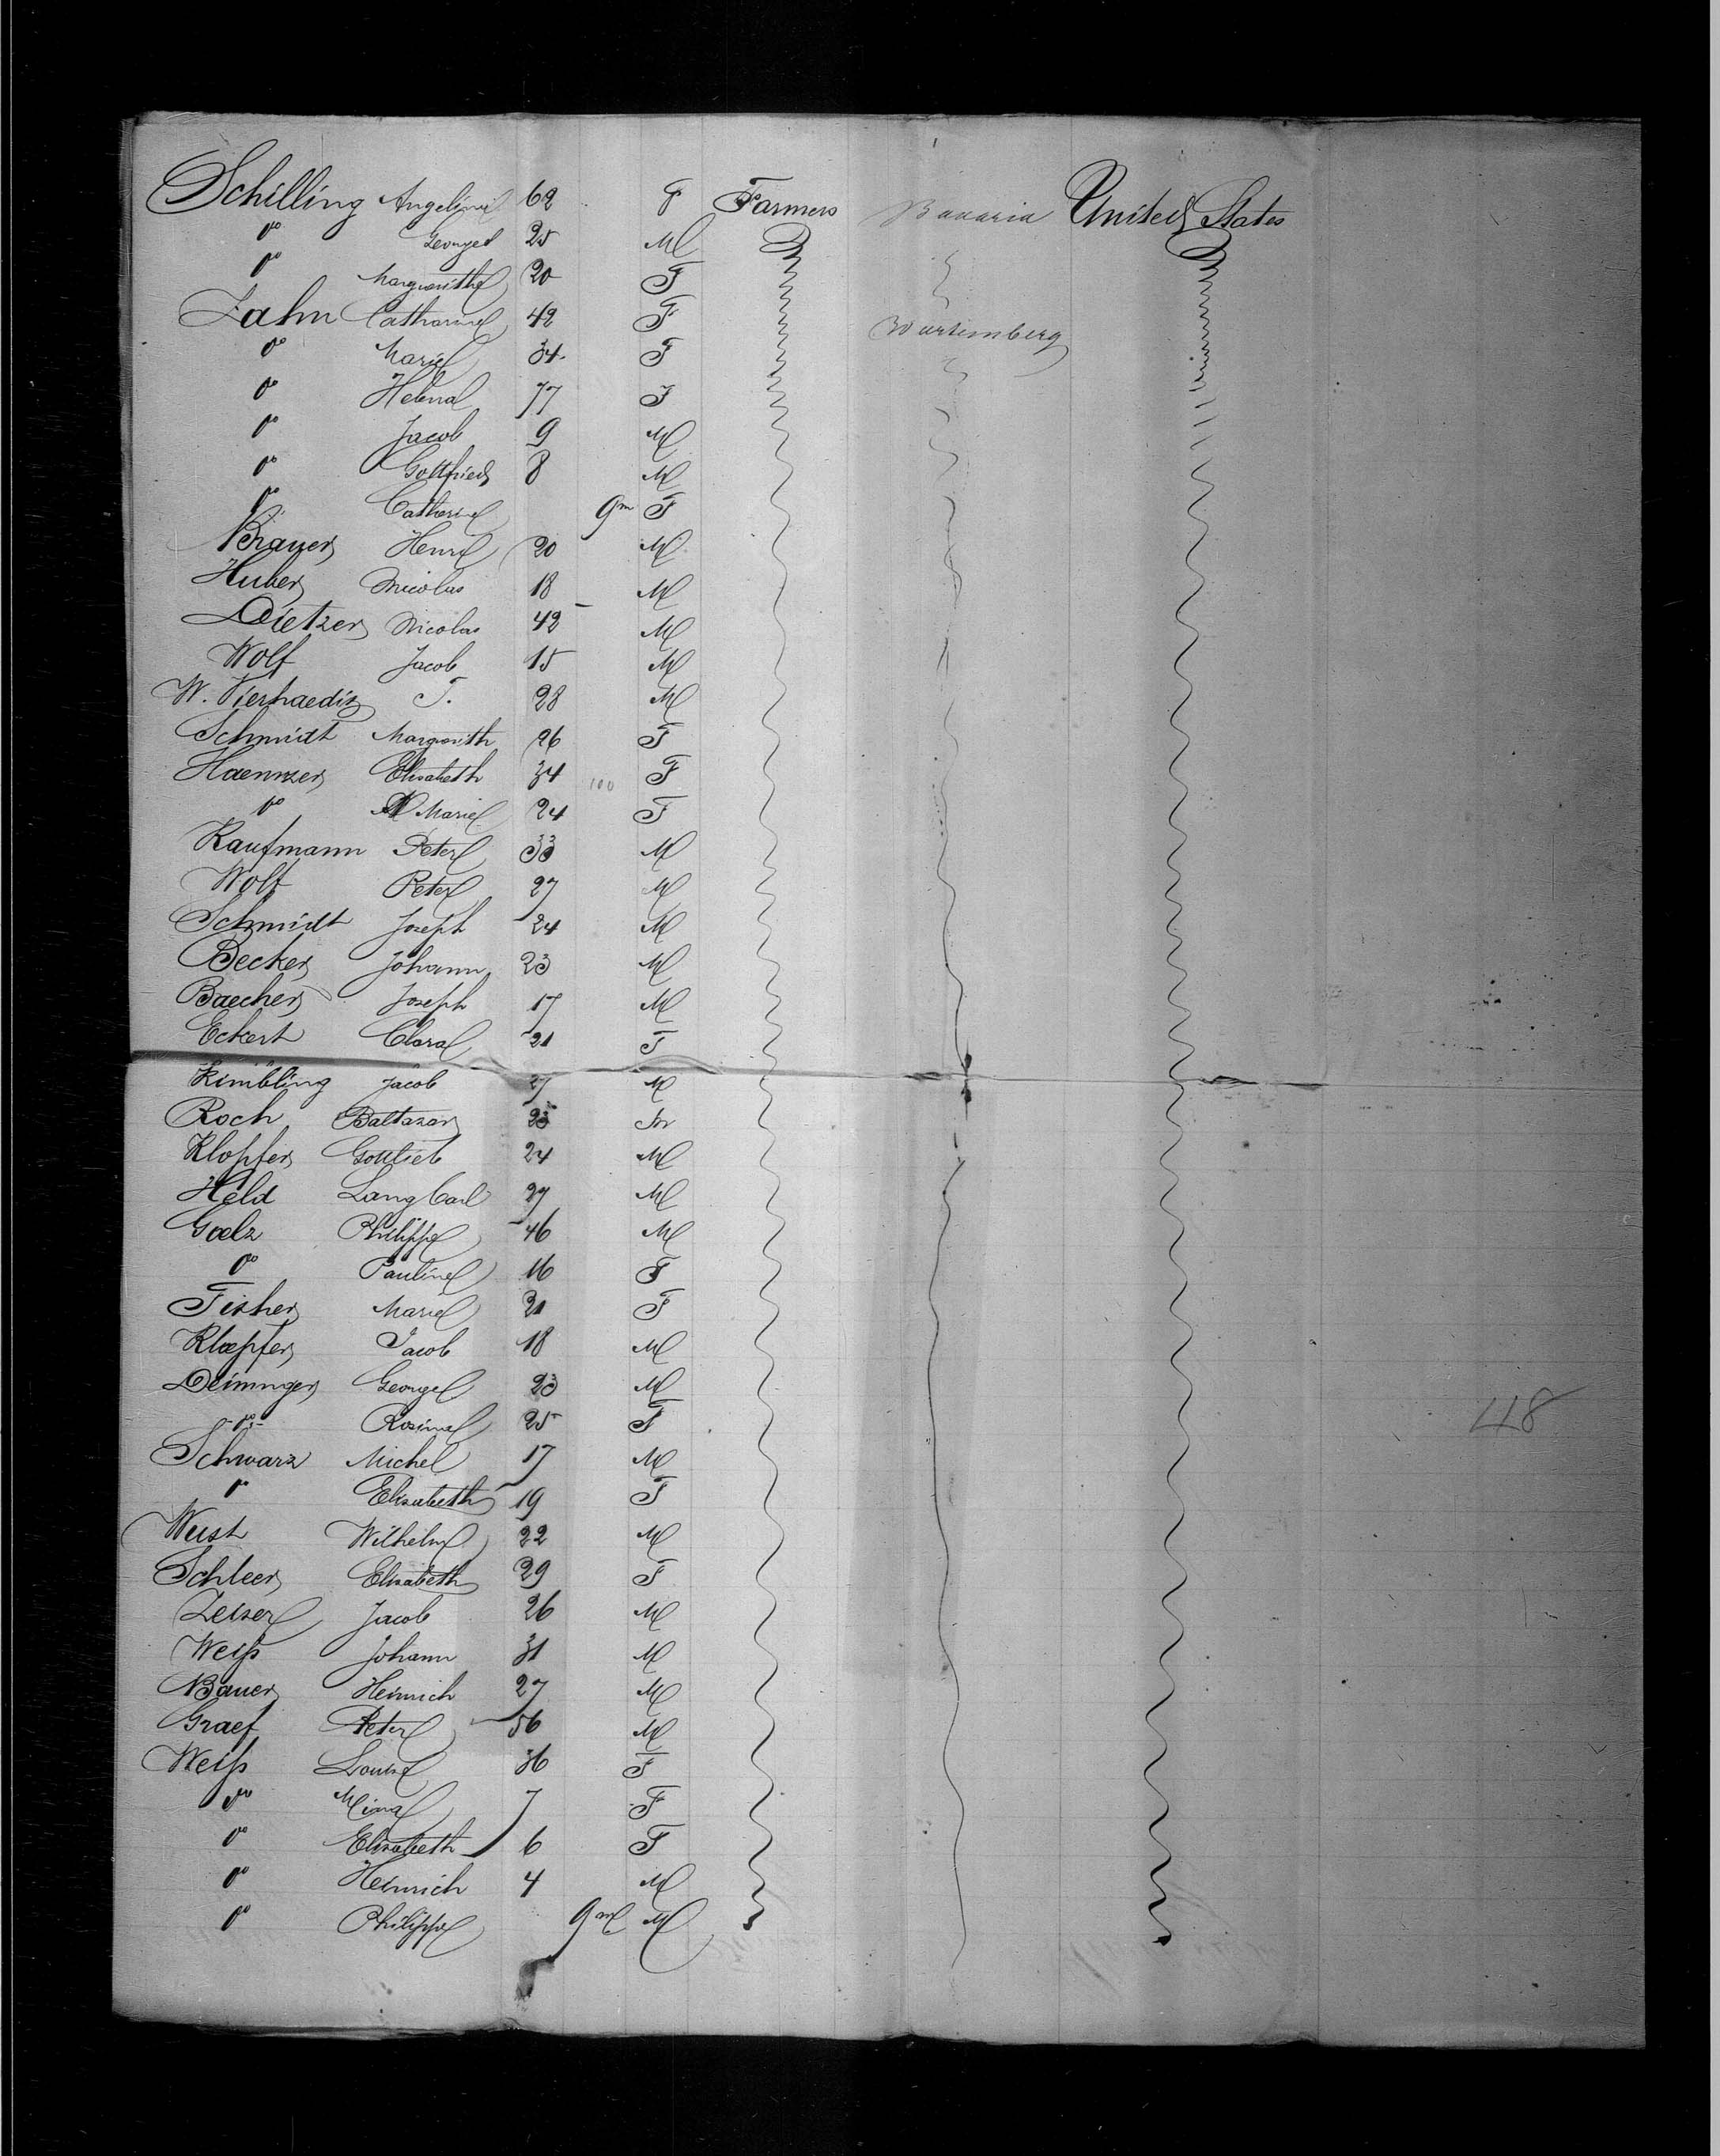 Schilling Angelime 62 F Farmers Bavaria United States
do George 25 M
do Margarithe 20 F
Zahn Catharine 42 F Wurtemberg
do Marie 34 F
do Helena 77 F
do Jacob 9 M
do Gottfried 8 M
do Catherine 9m F
Brauer Henri 20 M
Huber Nicolas 18 M
Dietzer Nicolas 42 M
Wolf Jacob 15 M
W. T. 28 M
Schmidt Margarith 26 F
Haenzer Elisabeth 34 100 F
do Marie 24 F
Kaufmann Peter 33 M
Wolf Peter 27 M
Schmidt Joseph 24 M
Becker Johann 23 M
Baecher Joseph 17 M
Eckert Clara 21 F
Kimbling Jacob 27 M
Roch Baltazar M
Klopfer Gottlieb 24 M
Held Lang Carl 27 M
Goelz Philippe 46 M
do Pauline 16 F
Fisher Marie 21 F
Kloepfer Jacob 18 M
Deininger George 23 M
do Rosine 25 F
Schwarz Michel 17 M
do Elisabeth 19 F
Wust Wilhelm 22 M
Schleer Elisabeth 29 F
Zeizer Jacob 26 M
Weiß Johann 31 M
Bauer Heinrich 27 M
Graef Peter 56 M
Weiß Louise 36 F
do Mina 7 F
do Elisabeth 6 F
do Heinrich 4 M
do Philippe 9m M
48